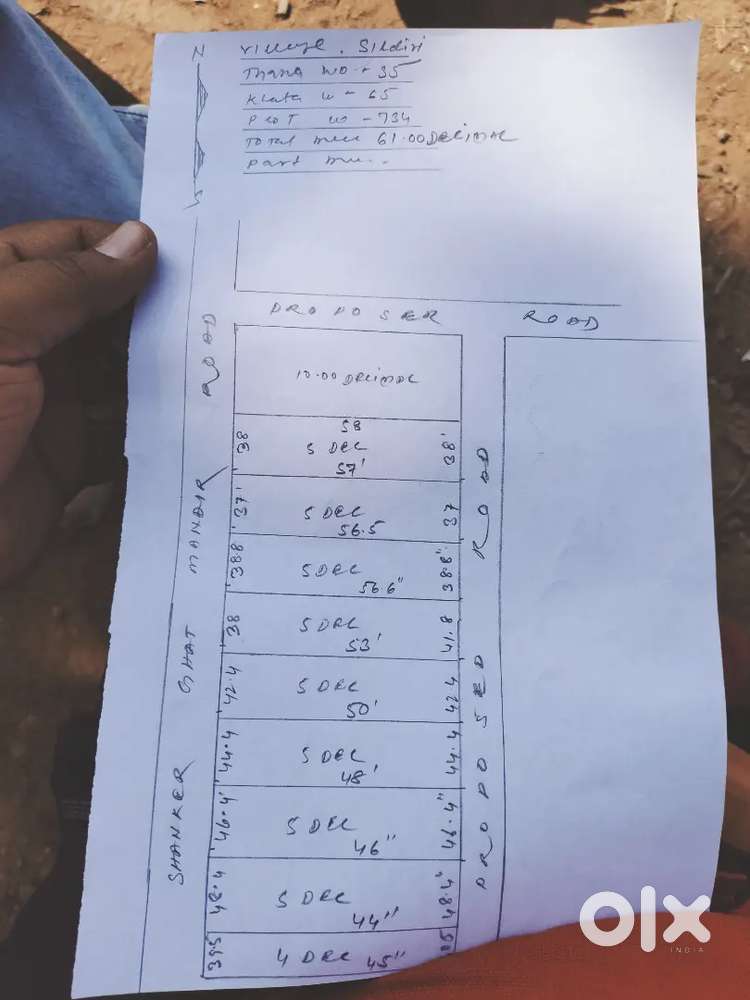 Village . Sildiri
Thana no - 35
Khata no - 65
PLOT no - 734
Total 61.00 DECIMAL
Part
N
S
PROPOSED ROAD
SHANKER GHAT MANDIR ROAD
PROPOSED ROAD
10.00 DECIMAL
58
38 5 DEC 38'
57'
37' 5 DEC 37
56.5
38.8 5 DEC 38.8"
56 6"
38 5 DEC 41.8
53'
42.4 5 DEC 42.4
50'
44.4 5 DEC 44.4
48'
46.4' 5 DEC 46.4"
46"
48.4 5 DEC 48.4"
44"
39.5 4 DEC
45"
olx
INDIA